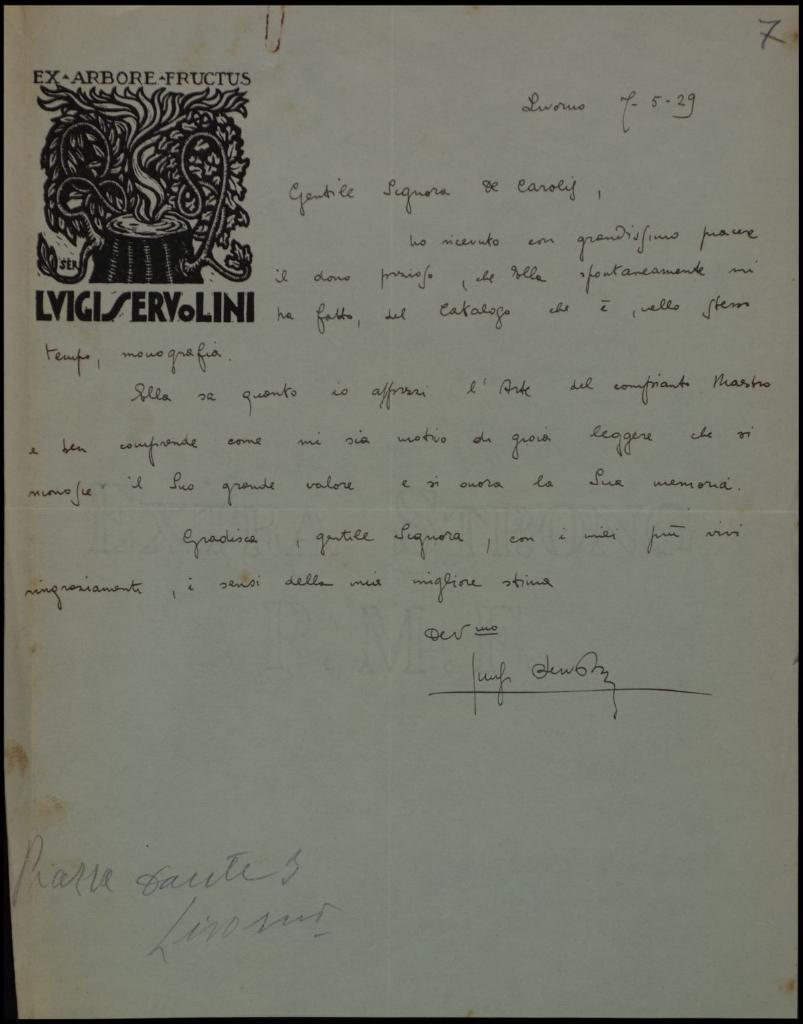 7
EX·ARBORE·FRUCTUS
SER
LVIGI SERVOLINI
Livorno 7-5-29
Gentile Signora De Carolis,
ho ricevuto con grandissimo piacere
il dono prezioso, che Ella spontaneamente mi
ha fatto, del Catalogo che è, nello stesso
tempo, monografia.
Ella sa quanto io apprezzi l'Arte del compianto Maestro
e ben comprende come mi sia motivo di gioia leggere che si
riconosce il Suo grande valore e si onora la Sua memoria.
Gradisca, gentile Signora, con i miei più vivi
ringraziamenti, i sensi della mia migliore stima
Dev mo
Luigi Servolini
Piazza Dante 3
Livorno
EXTRA STRONG
P.M.F